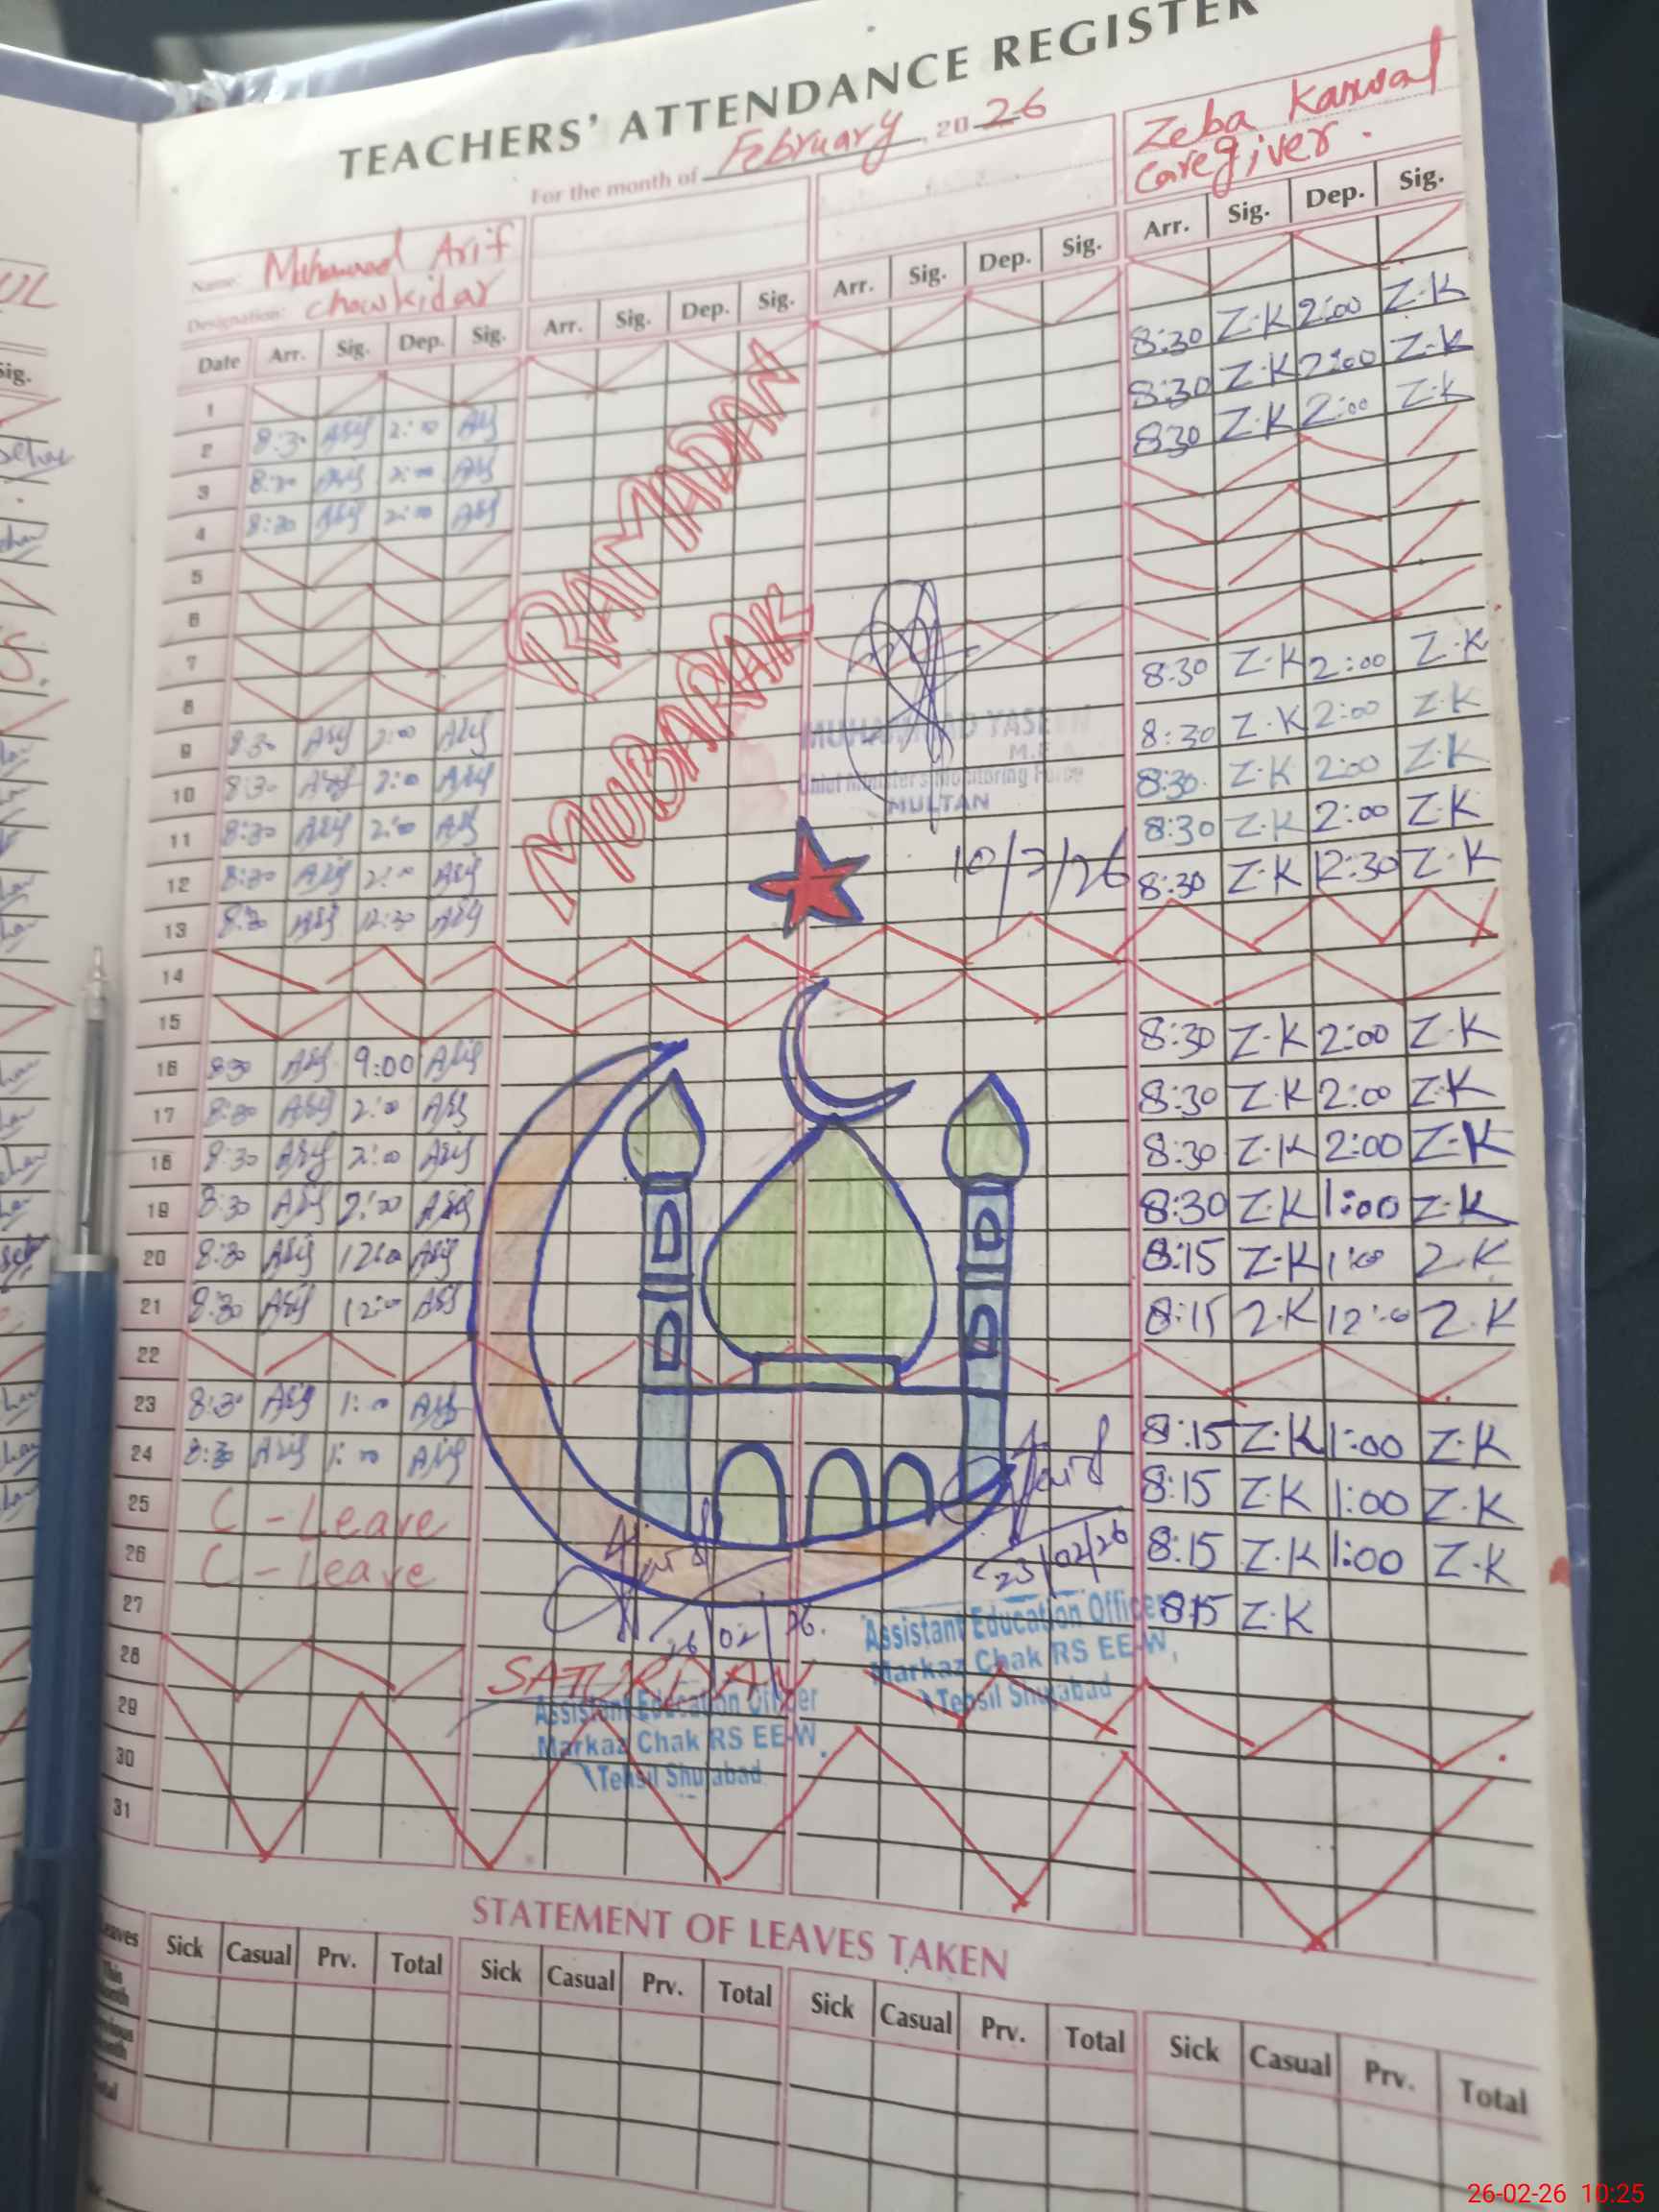 TEACHERS' ATTENDANCE REGISTER
For the month of February, 2026
Name: Muhammad Arif
Designation: Chowkidar
Zeba Kanwal
Caregiver.
Date Arr. Sig. Dep. Sig. Arr. Sig. Dep. Sig. Arr. Sig. Dep. Sig. Arr. Sig. Dep. Sig.
1
2 8:30 2:00 8:30 Z.K 2:00 Z.K
3 8:30 2:00 8:30 Z.K 2:00 Z.K
4 8:30 2:00 8:30 Z.K 2:00 Z.K
5
6
7
8
9 8:30 2:00 8:30 Z.K 2:00 Z.K
10 8:30 2:00 8:30 Z.K 2:00 Z.K
11 8:30 2:00 8:30 Z.K 2:00 Z.K
12 8:30 2:00 8:30 Z.K 2:00 Z.K
13 8:30 12:30 8:30 Z.K 12:30 Z.K
14
15
16 8:30 9:00 8:30 Z.K 2:00 Z.K
17 8:30 2:00 8:30 Z.K 2:00 Z.K
18 8:30 2:00 8:30 Z.K 2:00 Z.K
19 8:30 2:00 8:30 Z.K 1:00 Z.K
20 8:30 12:00 8:15 Z.K 1:00 Z.K
21 8:30 12:00 8:15 Z.K 12:00 Z.K
22
23 8:30 1:00 8:15 Z.K 1:00 Z.K
24 8:30 1:00 8:15 Z.K 1:00 Z.K
25 C - Leave 8:15 Z.K 1:00 Z.K
26 C - Leave 8:15 Z.K
27
28 SATURDAY
29
30
31
RAMADAN
MUBARAK
MUHAMMAD YASEEN
Chief Minister's Monitoring Force
MULTAN
10/2/26
23/02/26
Assistant Education Officer
Markaz Chak RS EE-W,
Tehsil Shujabad
26/02/26.
Assistant Education Officer
Markaz Chak RS EE-W.
Tehsil Shujabad
STATEMENT OF LEAVES TAKEN
Leaves Sick Casual Prv. Total Sick Casual Prv. Total Sick Casual Prv. Total Sick Casual Prv. Total
This Month
Previous Month
Total
26-02-26 10:25